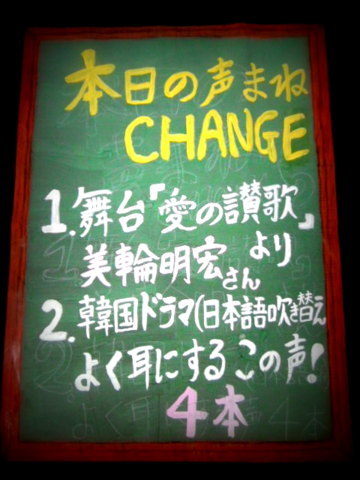 本日の声まね
CHANGE
1.舞台「愛の讃歌」
より
美輪明宏さん
2.韓国ドラマ(日本語吹き替え
よく耳にするこの声!
4本